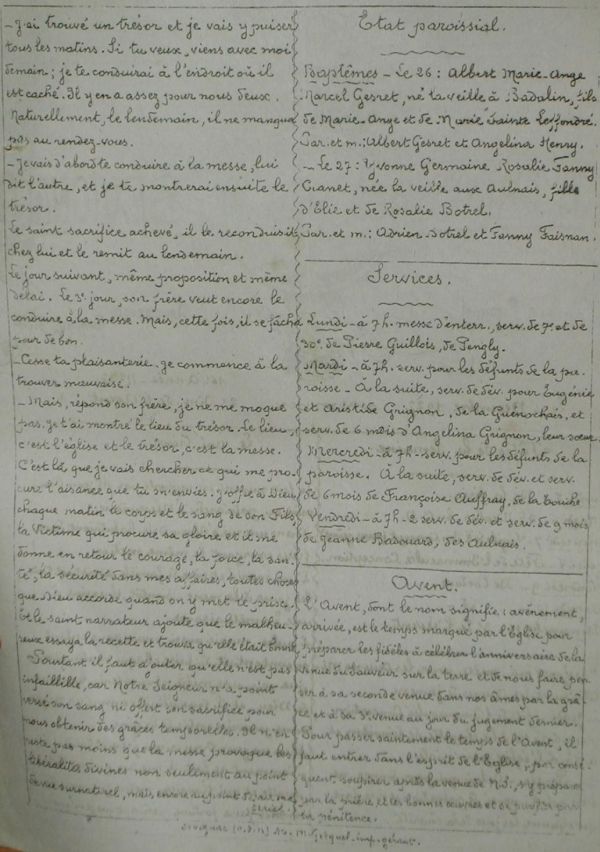 _ J'ai trouvé un trésor et je vais y puiser
tous les matins. Si tu veux, viens avec moi
demain ; je te conduirai à l'endroit où il
est caché. Il y en a assez pour nous deux.
Naturellement, le lendemain, il ne manqua
pas au rendez-vous.
_ Je vais d'abord te conduire à la messe, lui
dit l'autre, et je te montrerai ensuite le
trésor.
Le saint sacrifice achevé, il le reconduisit
chez lui et le remit au lendemain.
Le jour suivant, même proposition et même
délai. Le 3e jour, son frère veut encore le
conduire à la messe. Mais, cette fois, il se fâcha
pour de bon.
_ Cesse ta plaisanterie. Je commence à la
trouver mauvaise.
_ Mais, répond son frère, je ne me moque
pas, je t'ai montré le lieu du trésor. Le lieu,
c'est l'église et le trésor, c'est la messe.
C'est là, que je vais chercher ce qui me pro-
cure l'aisance que tu m'envies. J'offre à Dieu
chaque matin le corps et le sang de son Fils,
la Victime qui procure sa gloire et il me
donne en retour le courage, la force, la san-
té, la sécurité dans mes affaires, toutes choses
que Dieu accorde quand on y met le prix.
Et le saint narrateur ajoute que le malheu-
reux essaya la recette et trouva qu'elle était bonne.
Pourtant il faut ajouter qu'elle n'est pas
infaillible, car Notre Seigneur n'a point
versé son sang ni offert son sacrifice pour
nous obtenir des grâces temporelles. Il n'en
reste pas moins que la messe provoque les
libéralités divines non seulement au point
de vue surnaturel, mais encore au point de vue
Etat paroissial.
Baptêmes - Le 26 : Albert Marie-Ange
Marcel Gesret, né la veille à Badalin, fils
de Marie-Ange et de Marie Sainte
Par. et m. : Albert Gesret et Angelina Henry.
- Le 27 : Yvonne Germaine Rosalie Fanny
née la veille aux Aulnais, fille
d'Elie et de Rosalie Botrel.
Par. et m. : Adrien Botrel et Fanny Faisnan.
Services.
Lundi - à 7h. messe d'enterr., serv. de 7e et de
30e de Pierre Guillois, de Pengly.
Mardi - à 7h. serv. pour les défunts de la pa-
roisse - À la suite, serv. de dév. pour Eugénie
et Aristide Grignon, de la Guénochais, et
serv. de 6 mois d'Angelina Grignon, leur sœur.
Mercredi - à 7h - serv. pour les défunts de la
paroisse. À la suite, serv. de dév. et serv.
de 6 mois de Françoise Auffray, de la Touche
Vendredi - à 7h - 2 serv. de dév. et serv. de 9 mois
de Jeanne Badouard, des Aulnais.
Avent.
L'Avent, dont le nom signifie : avènement,
arrivée, est le temps marqué par l'Eglise pour
préparer les fidèles à célébrer l'anniversaire de la
venue du Sauveur sur la terre et de nous faire pen-
ser à sa seconde venue dans nos âmes par la grâ-
ce et à sa 3e venue au jour du jugement dernier.
Pour passer saintement le temps de l'Avent, il
faut entrer dans l'esprit de l'Eglise, par consé-
quent, soupirer après la venue de N.S., s'y préparer
par la prière et les bonnes œuvres et se purifier par
la pénitence.
imp. gérant.